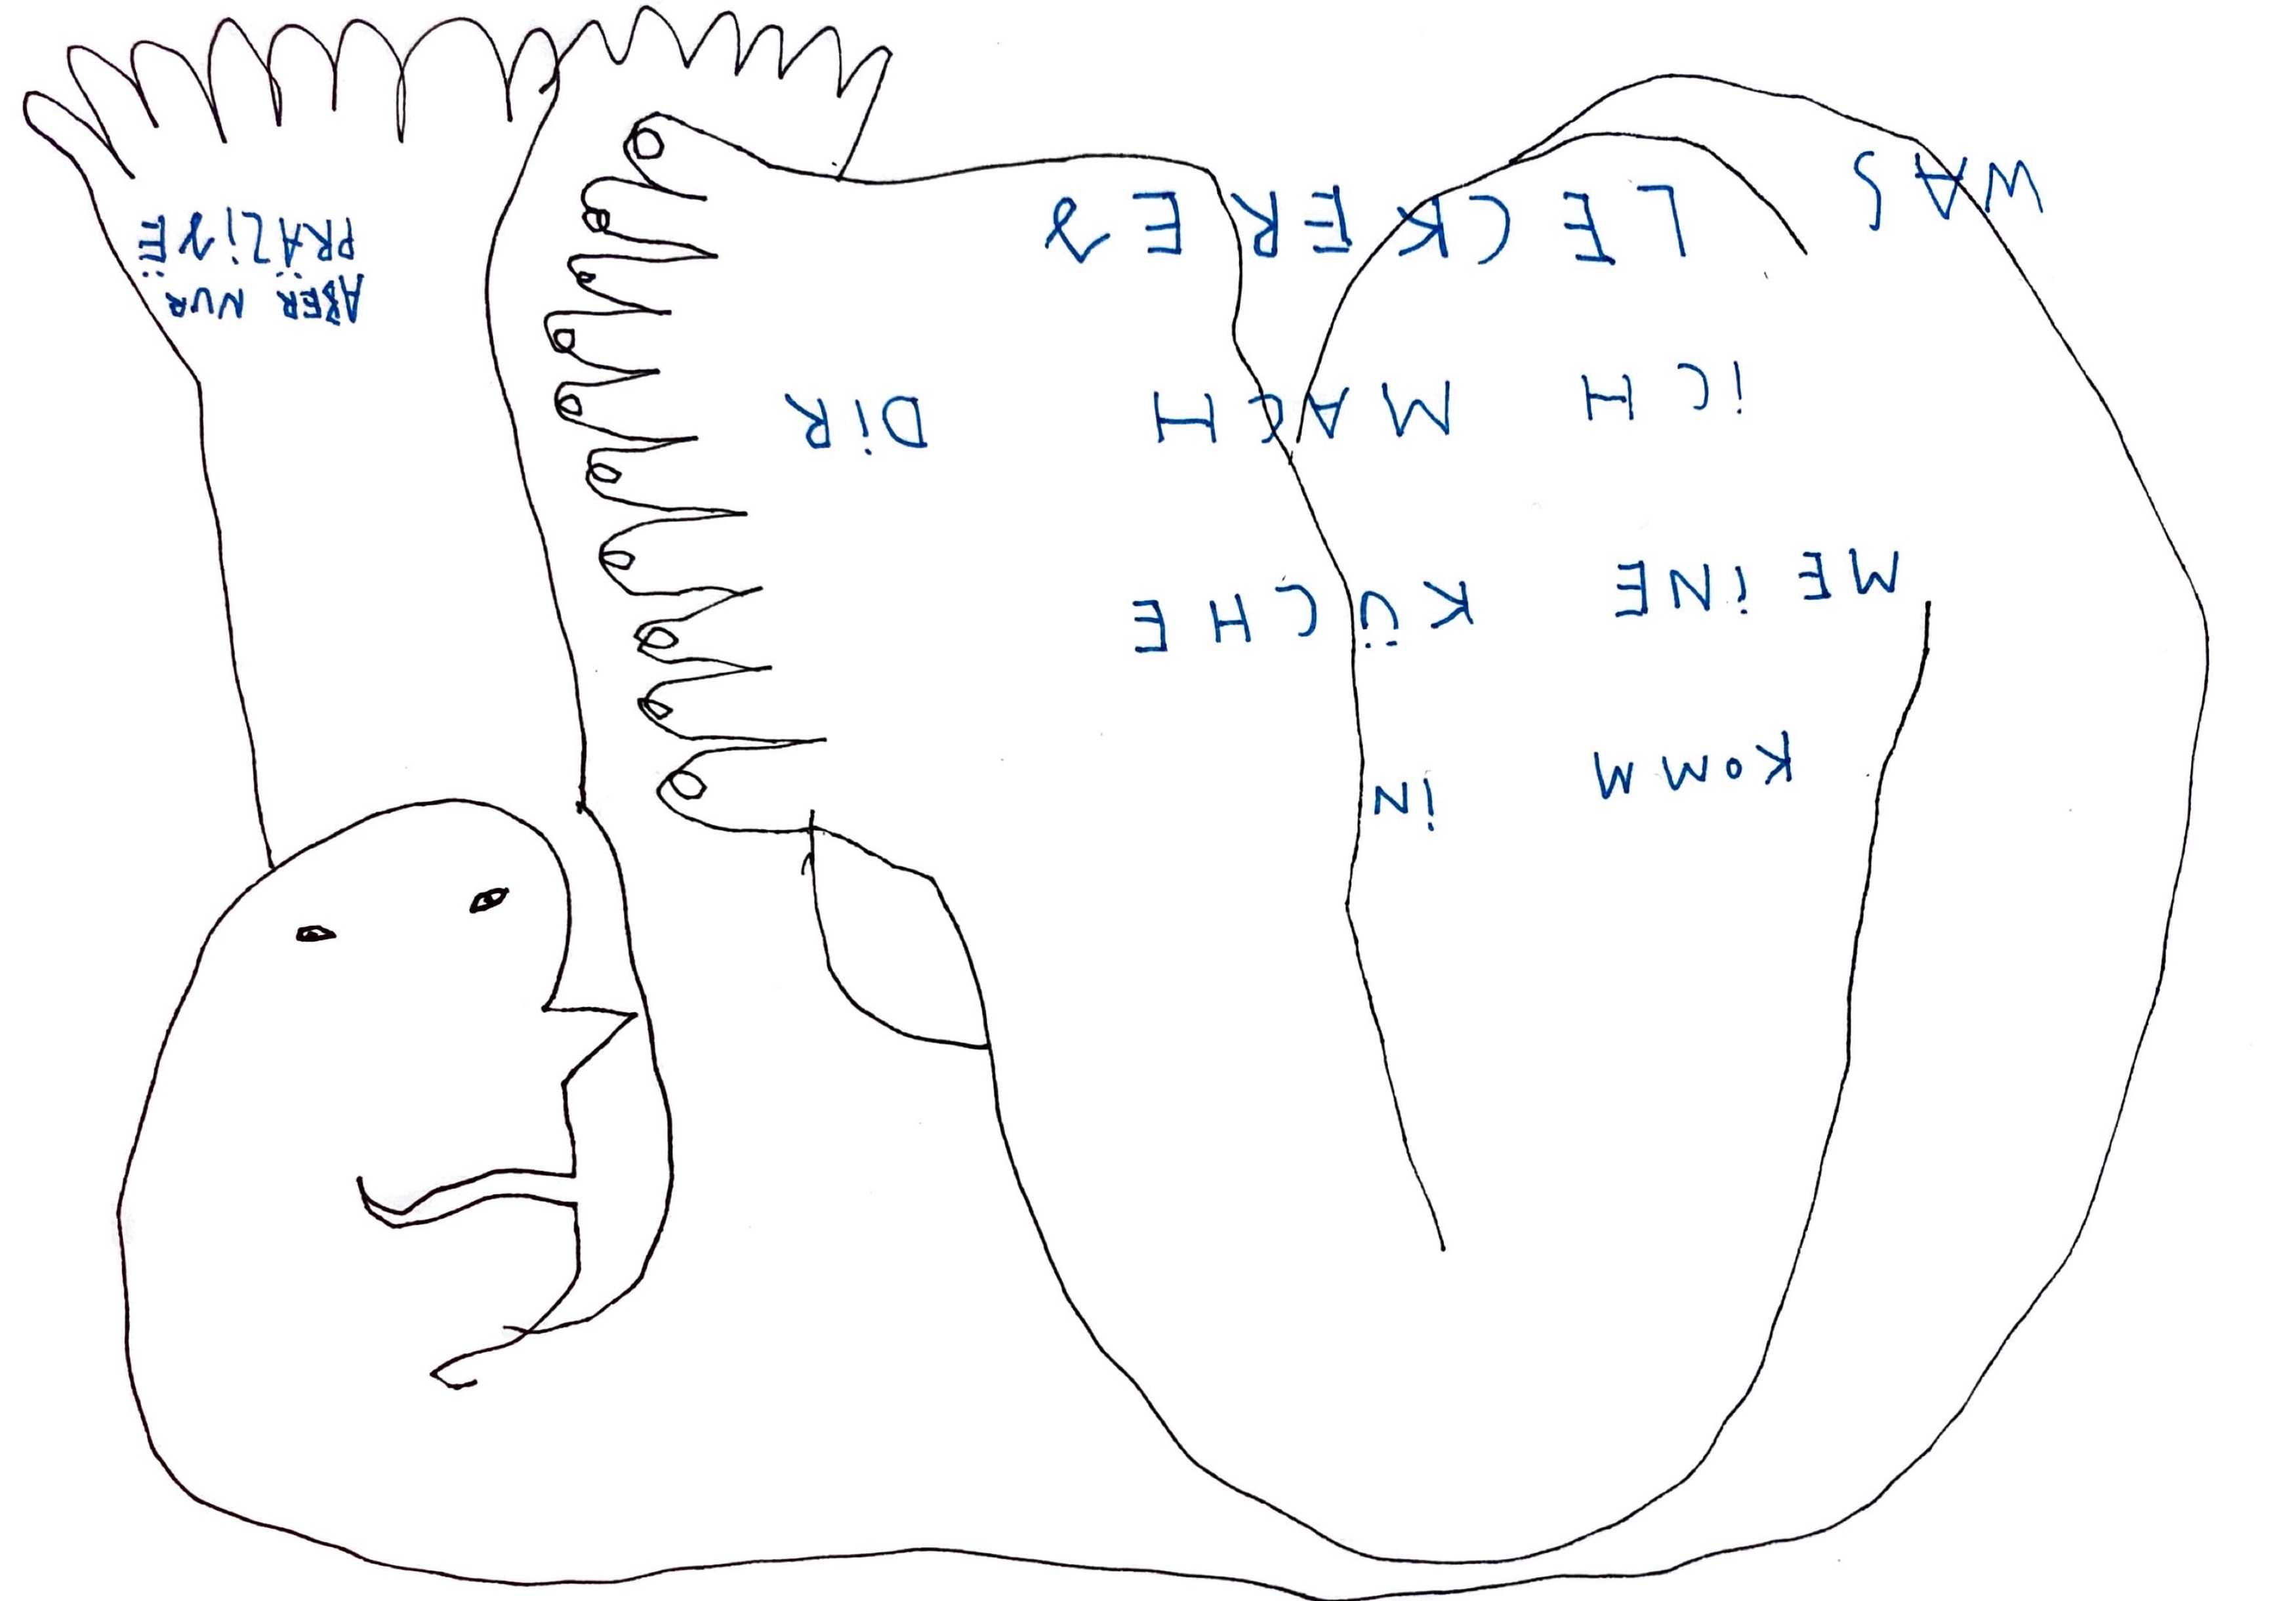 KOMM iN
MEiNE KÜCHE
iCH MACH DiR
WAS LECKERES
ABER NUR
PRÄZiSË